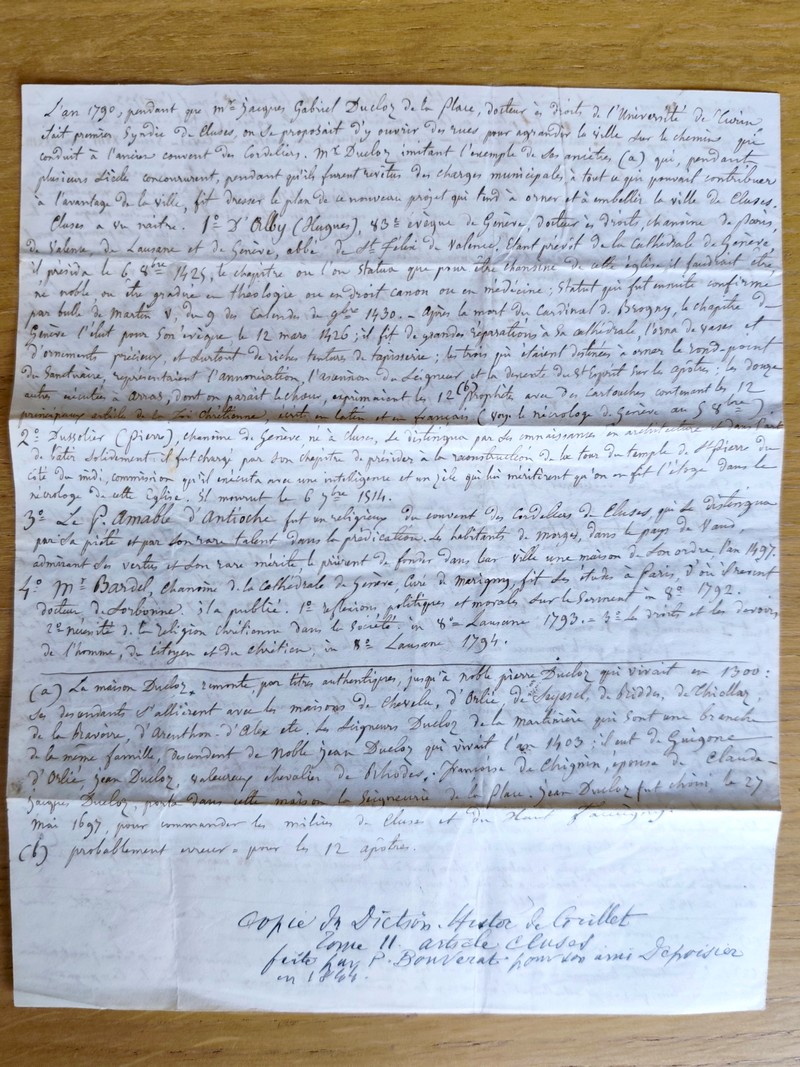 L'an 1790, pendant que Mr Jacques Gabriel Ducloz de la Place, docteur ès droits de l'Université de Turin
était premier Syndic de Cluses, on se proposait d'y ouvrir des rues pour agrandir la ville sur le chemin qui
conduit à l'ancien couvent des Cordeliers. Mr Ducloz imitant l'exemple de ses ancêtres (a) qui, pendant
plusieurs siècle concoururent, pendant qu'ils furent revêtus des charges municipales, à tout ce qui pouvait contribuer
à l'avantage de la ville, fit dresser le plan de ce nouveau projet qui tend à orner et à embellir la ville de Cluses.
Cluses a vu naitre. 1º D'Orlby (Hugues), 83e évêque de Genève, docteur ès droits, chanoine de Paris,
de Valence, de Lausane et de Genève, abbé de St Félix de Valence. Etant prevôt de la Cathédrale de Genève,
il présida le 6 8bre 1425, le chapitre où l'on statua que pour être chanoine de cette église il faudrait être
né noble, ou être gradué en théologie ou en droit canon ou en médecine; Statut qui fut ensuite confirmé
par bulle de Martin V, du 9 des Calendes de 9bre 1430. - Après la mort du Cardinal de Brogny, le chapitre de
Genève l'élut pour son évêque, le 12 mars 1426; il fit de grandes réparations à sa cathédrale, l'orna de vases et
d'ornements précieux, et surtout de riches tentures de tapisserie; les trois qui étaient destinées à orner le rond-point
du Sanctuaire, représentaient l'annonciation, l'ascension du Seigneur et la descente du St Esprit sur les apôtres; les douze
autres exécutées à Arras, dont on parait le chœur, exprimaient les 12 (b) Prophète avec des cartouches contenant les 12
principaux article de la Foi Chrétienne, écrits en latin et en français (voyez le nécrologe de Genève au 5 8bre)
2º Dussolier (Pierre), chanoine de Genève né à Cluses, se distingua par ses connaissances en architecture et dans l'art
de bâtir solidement il fut chargé par son chapitre de présider à la reconstruction de la tour du temple de St Pierre du
côté du midi, commission qu'il exécuta avec une intelligence et un zèle qui lui méritèrent qu'on en fit l'éloge dans le
nécrologe de cette Eglise. Il mourut le 6 7bre 1514.
3º Le P. Amable d'Antioche fut un religieux du couvent des Cordeliers de Cluses, qui se distingua
par sa piété et par son rare talent dans la prédication. Le habitants de Morges, dans le pays de Vaud,
admirant ses vertus et son rare mérite, le prièrent de fonder dans leur ville une maison de son ordre l'an 1497.
4º Mr Bardel, Chanoine de la Cathédrale de Genève, Curé de Merigny, fit ses études à Paris, d'où il revint
docteur de Sorbonne. il a publié. 1º reflexions politiques et morales sur le Serment in 8º 1792.
2º nécessité de la religion chrétienne dans la Société in 8º Lausane 1793. = 3º Le droits et les devoirs
de l'homme, du citoyen et du chrétien, in 8º Lausane 1794.
(a) La maison Ducloz remonte, par titres authentiques, jusqu'à noble pierre Ducloz qui vivait en 1300:
ses descendants s'allièrent avec les maisons de Chevelu, d'Orlié, de Seyssel, de Riddes, de Thiollaz,
de la Ravoire, d'Arenthon. d'Alex etc. Les Seigneurs Ducloz de la martinière qui sont une branche
de la même famille, descendent de Noble Jean Ducloz qui vivait l'an 1403; il eut de Guigone
d'Orlié, Jean Ducloz, valeureux chevalier de Rhodes; Françoise de Chignin, épouse de Claude-
Jacques Ducloz, porta dans cette maison la Seigneurie de la Place. Jean Ducloz fut choisi le 27
Mai 1697, pour commander les milices de Cluses et du Haut Faucigny.
(b) probablement erreur = pour les 12 apôtres.
Copie du Diction. Histor de Grillet
Tome II article Cluses
faite par P. Bonverat pour son ami Depoisier
en 1864.